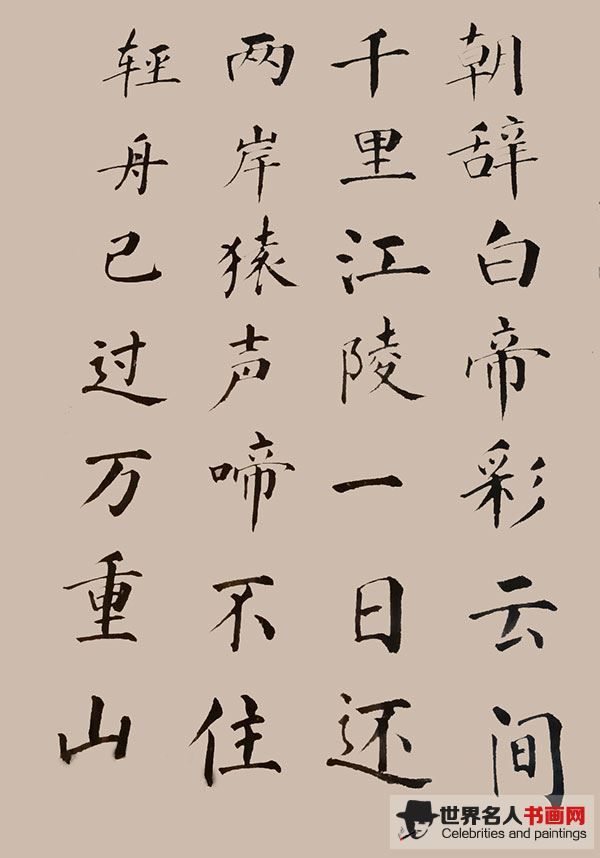 朝辞白帝彩云间
千里江陵一日还
两岸猿声啼不住
輕舟已过万重山
世界名人书画网
Celebrities and paintings